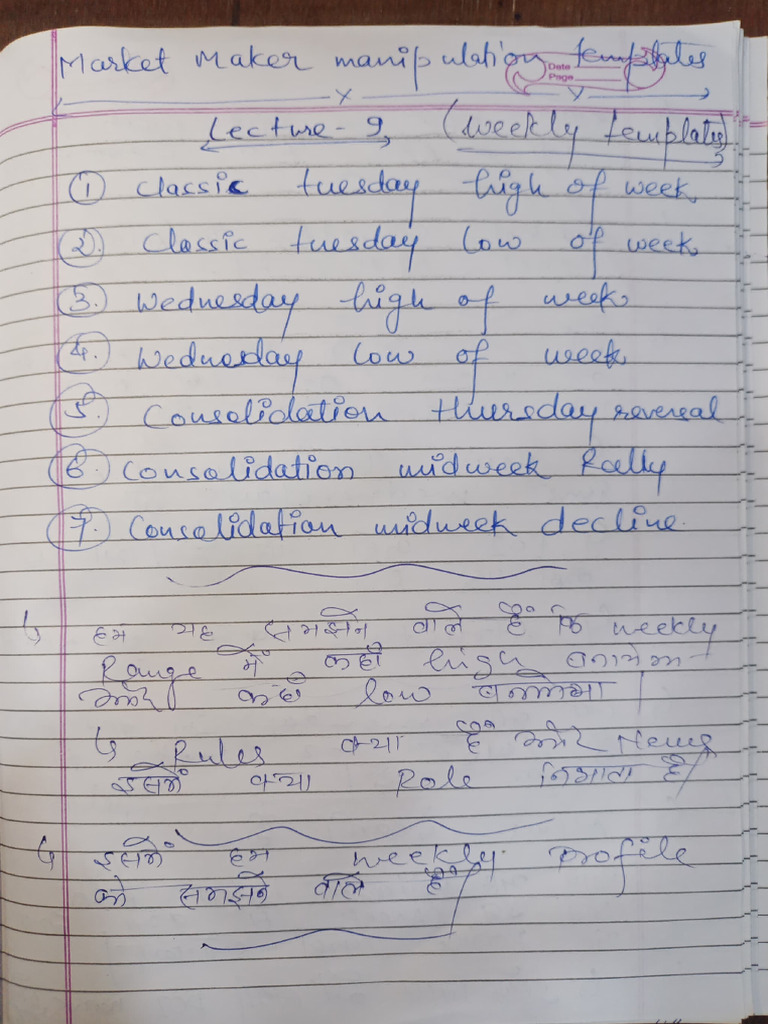 Market Maker manipulation templates
Date
Page
Lecture - 9 (weekly templates)
① Classic tuesday high of week
②. Classic tuesday low of week
③. Wednesday high of week
④. Wednesday low of week
⑤. Consolidation thursday reversal
⑥. Consolidation midweek Rally
⑦. Consolidation midweek decline.
↳ हम यह समझने वाले हैं कि weekly
Range में कहाँ high बनायेगा
और कहाँ low बनायेगा |
↳ Rules क्या हैं और News
इसमें क्या Role निभाता है |
↳ इसमें हम weekly profile
को समझने वाले हैं |